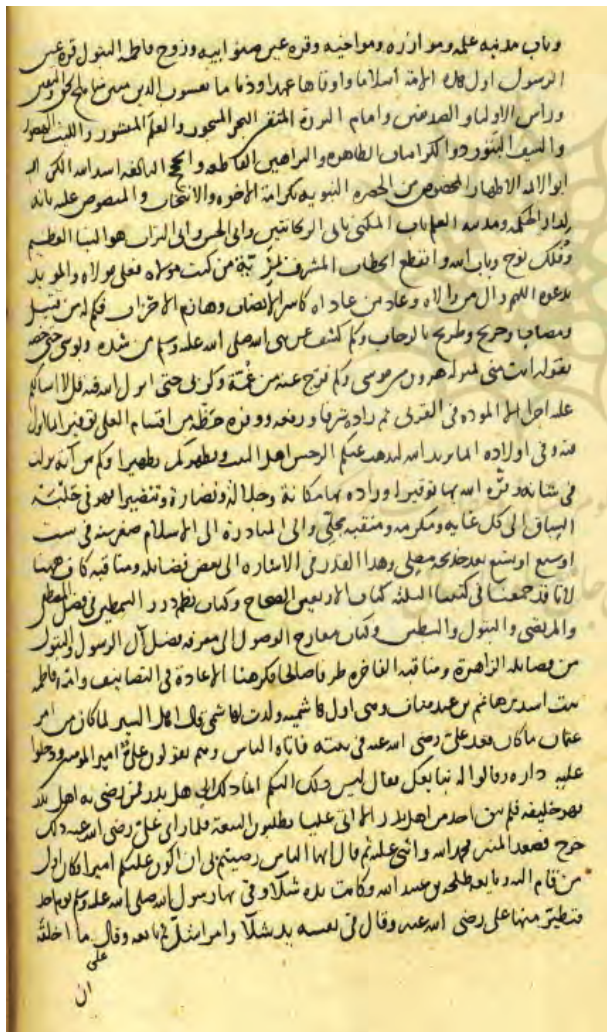 وباب مدينة علمه وموازره ومواخيه وقره عين صنو ابيه وزوج فاطمه البتول قره عين
الرسول اول هذه الامة اسلاما واوفاها عهدا وذماما يعسوب الدين مبين مناهج الحق واليقين
وراس الاوليا والصديقين وامام البررة المتقين البحر المسجور والعلم المنشور والليث الهصور
والسيف البتور ذو الكرامات الطاهره والبراهين القاطعه والحجج البالغه اسد الله الكرار
ابو الايمه الاطهار المخصوص من الحضره النبويه بكرامة الاخوه والانتخاب والمنصوص عليه بانه
لدار الحكمه ومدينه العلم باب المكنى بابي الريحانتين وابي الحسن وابي التراب هو النبا العظيم
وفلك نوح وباب الله وانقطع الخطاب المشرف بمزية من كنت مولاه فعلى مولاه والمويد
بدعوه اللهم وال من والاه وعاد من عاداه كاسر الانصاب وهازم الاحزاب فكم له من قتيل
ومصاب وجريح وطريح بالرحاب وكم كشف عن نبى الله صلى الله عليه وسلم من شده وبوسى حتى خصه
بقوله انت منى بمنزله هرون من موسى وكم فرج عنه من غمة وكربى حتى انزل الله فيه قل لا اسالكم
عليه اجرا الا المودة فى القربى ثم زاده شرفا ورفعه ووفر حظه من اقسام العلى توفيرا بما انزل
فيه وفى اولاده انما يريد الله ليذهب عنكم الرجس اهل البيت ويطهركم تطهيرا وكم من آية نزلت
فى شانه وقره الله بها توقيرا وزاده بها مكانة وجلالة ونضارة وتنضيرا فهو فى حلبة
السباق الى كل غايه ومكرمه ومنقبه مجلى والى المبادرة الى الاسلام صغر سنه فى ست
او سبع او تسع بعد خديجه مصلى وهذا القدر فى الاشاره الى بعض فضايله ومناقبه كاف ههنا
لانا قد جمعنا فى كتبنا الثلثه كتاب الاربعين الصحاح وكتاب نظم درر السمطين فى فضل المصطفى
والمرتضى والبتول والسبطين وكتاب معارج الوصول الى معرفه فضل آل الرسول والبتول
من فضايله الزاهرة ومناقبه الفاخره طرفا صالحا فكرهنا الاعادة فى التصانيف وامه فاطمه
بنت اسد بن هاشم بن عبد مناف وهى اول هاشميه ولدت لهاشمى قال اهل السير لما كان من امر
عثمان ما كان قعد على رضى الله عنه فى بيته فاتاه الناس وهم يقولون على امير المومنين ودخلوا
عليه داره وقالوا له نبايعك فقال ليس ذلك اليكم انما ذلك الى اهل بدر فمن رضى به اهل بدر
فهو خليفه فلم يبق احد من اهل بدر الا اتى عليا يطلبون البيعة فلما راى على رضى الله عنه ذلك
خرج فصعد المنبر فحمد الله واثنى عليه ثم قال ايها الناس رضيتم بى ان اكون عليكم اميرا فكان اول
من قام اليه وبايعه طلحه بن عبيد الله وكانت يده شلاء وقى بها رسول الله صلى الله عليه وسلم يوم احد
فتطير منها على رضى الله عنه وقال فى نفسه يد شلاء وامر لا يتم بايعه وقال ما اخلقه
على
ان